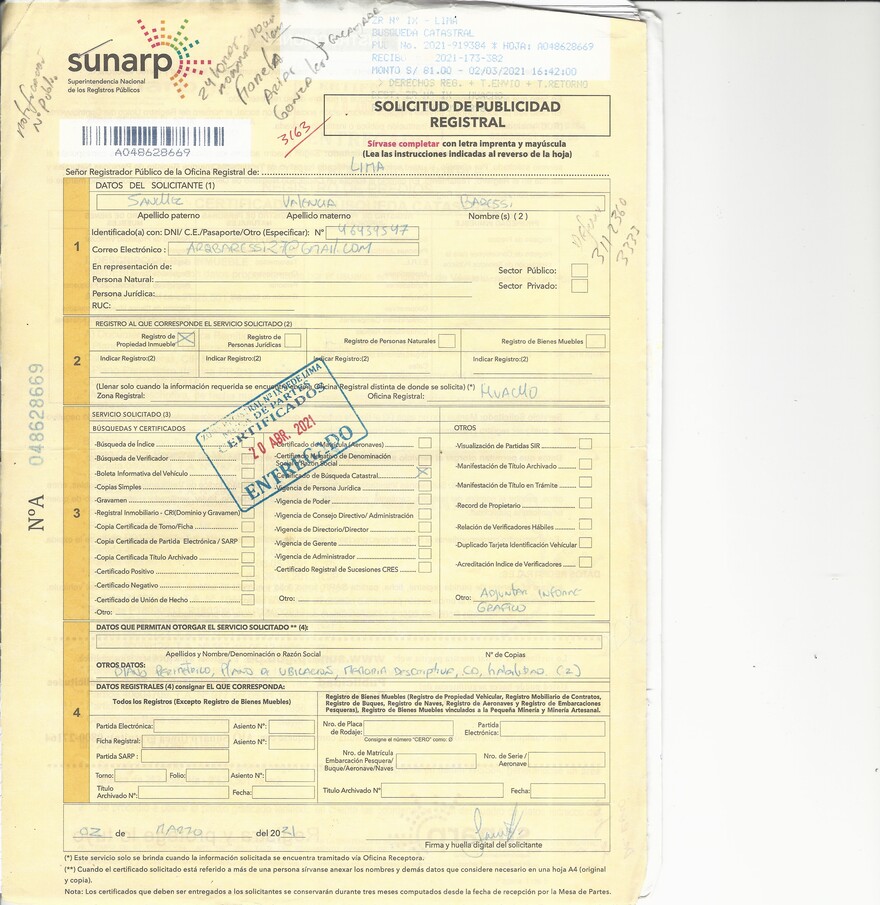 ER Nº IX - LIMA
BUSQUEDA CATASTRAL
PUB No. 2021-919384 * HOJA: A048628669
RECIB. 2021-173-382
MONTO S/ 81.00 - 02/03/2021 16:42:00
> DERECHOS REG. + T.ENVIO + T.RETORNO
sunarp
Superintendencia Nacional
de los Registros Públicos
SOLICITUD DE PUBLICIDAD
REGISTRAL
3163
A048628669
Sírvase completar con letra imprenta y mayúscula
(Lea las instrucciones indicadas al reverso de la hoja)
Señor Registrador Público de la Oficina Registral de: LIMA
DATOS DEL SOLICITANTE (1)
SANCHEZ VALENCIA BARESSI
Apellido paterno Apellido materno Nombre(s) (2)
Identificado(a) con: DNI/ C.E./Pasaporte/Otro (Especificar): Nº 46439547
Correo Electrónico: ARQBARESSI27@GMAIL.COM
3112360
3333
1
En representación de:
Persona Natural:
Persona Jurídica:
RUC:
Sector Público:
Sector Privado:
REGISTRO AL QUE CORRESPONDE EL SERVICIO SOLICITADO (2)
2
Registro de Propiedad Inmueble X Registro de Personas Jurídicas Registro de Personas Naturales Registro de Bienes Muebles
Indicar Registro:(2) Indicar Registro:(2) Indicar Registro:(2) Indicar Registro:(2)
(Llenar solo cuando la información requerida se encuentra en una Oficina Registral distinta de donde se solicita) (*)
Zona Registral: Oficina Registral: HUACHO
048628669
NºA
3
SERVICIO SOLICITADO (3)
BÚSQUEDAS Y CERTIFICADOS
-Búsqueda de Índice
-Búsqueda de Verificador
-Boleta Informativa del Vehículo
-Copias Simples
-Gravamen
-Registral Inmobiliario - CRI(Dominio y Gravamen)
-Copia Certificada de Tomo/Ficha
-Copia Certificada de Partida Electrónica / SARP
-Copia Certificada Título Archivado
-Certificado Positivo
-Certificado Negativo
-Certificado de Unión de Hecho
-Otro:
CERTIFICADOS
20 ABR. 2021
ENTREGADO
-Certificado de Matrícula (Aeronaves)
-Certificado Negativo de Denominación
Social / Razón Social
-Certificado de Búsqueda Catastral X
-Vigencia de Persona Jurídica
-Vigencia de Poder
-Vigencia de Consejo Directivo/ Administración
-Vigencia de Directorio/Director
-Vigencia de Gerente
-Vigencia de Administrador
-Certificado Registral de Sucesiones CRES
Otro:
OTROS
-Visualización de Partidas SIR
-Manifestación de Título Archivado
-Manifestación de Título en Trámite
-Record de Propietario
-Relación de Verificadores Hábiles
-Duplicado Tarjeta Identificación Vehicular
-Acreditación Indice de Verificadores
Otro: ADJUNTAR INFORME
GRAFICO
DATOS QUE PERMITAN OTORGAR EL SERVICIO SOLICITADO ** (4):
Apellidos y Nombre/Denominación o Razón Social Nº de Copias
OTROS DATOS:
PLANO PERIMÉTRICO, PLANO DE UBICACIÓN, MEMORIA DESCRIPTIVA, CD, HABILIDAD (2)
4
DATOS REGISTRALES (4) consignar EL QUE CORRESPONDA:
Todos los Registros (Excepto Registro de Bienes Muebles)
Partida Electrónica: Asiento Nº:
Ficha Registral: Asiento Nº:
Partida SARP :
Tomo: Folio: Asiento Nº:
Título Archivado Nº: Fecha:
Registro de Bienes Muebles (Registro de Propiedad Vehicular, Registro Mobiliario de Contratos,
Registro de Buques, Registro de Naves, Registro de Aeronaves y Registro de Embarcaciones
Pesqueras), Registro de Bienes Muebles vinculados a la Pequeña Minería y Minería Artesanal.
Nro. de Placa de Rodaje: Partida Electrónica:
Consigne el número "CERO" como: Ø
Nro. de Matrícula Embarcación Pesquera/ Buque/Aeronave/Naves Nro. de Serie / Aeronave
Título Archivado Nº Fecha:
02 de MARZO del 2021
Firma y huella digital del solicitante
(*) Este servicio solo se brinda cuando la información solicitada se encuentra tramitado vía Oficina Receptora.
(**) Cuando el certificado solicitado está referido a más de una persona sírvanse anexar los nombres y demás datos que considere necesario en una hoja A4 (original
y copia).
Nota: Los certificados que deben ser entregados a los solicitantes se conservarán durante tres meses computados desde la fecha de recepción por la Mesa de Partes.